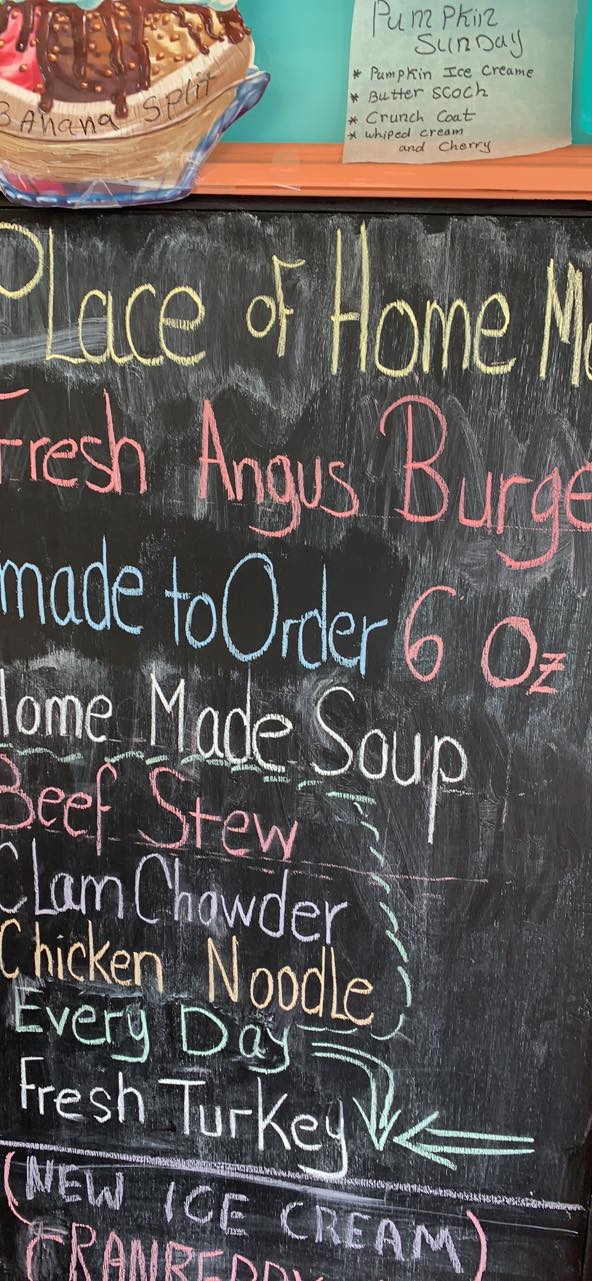 Banana Split
Pumpkin
Sunday
* Pumpkin Ice Creame
* Butter Scoch
* Crunch Coat
* whiped cream
and Cherry
Place of Home M
Fresh Angus Burge
made to Order 6 Oz
Home Made Soup
Beef Stew
Clam Chowder
Chicken Noodle
Every Day
Fresh Turkey
(NEW ICE CREAM)
CRANBERRY